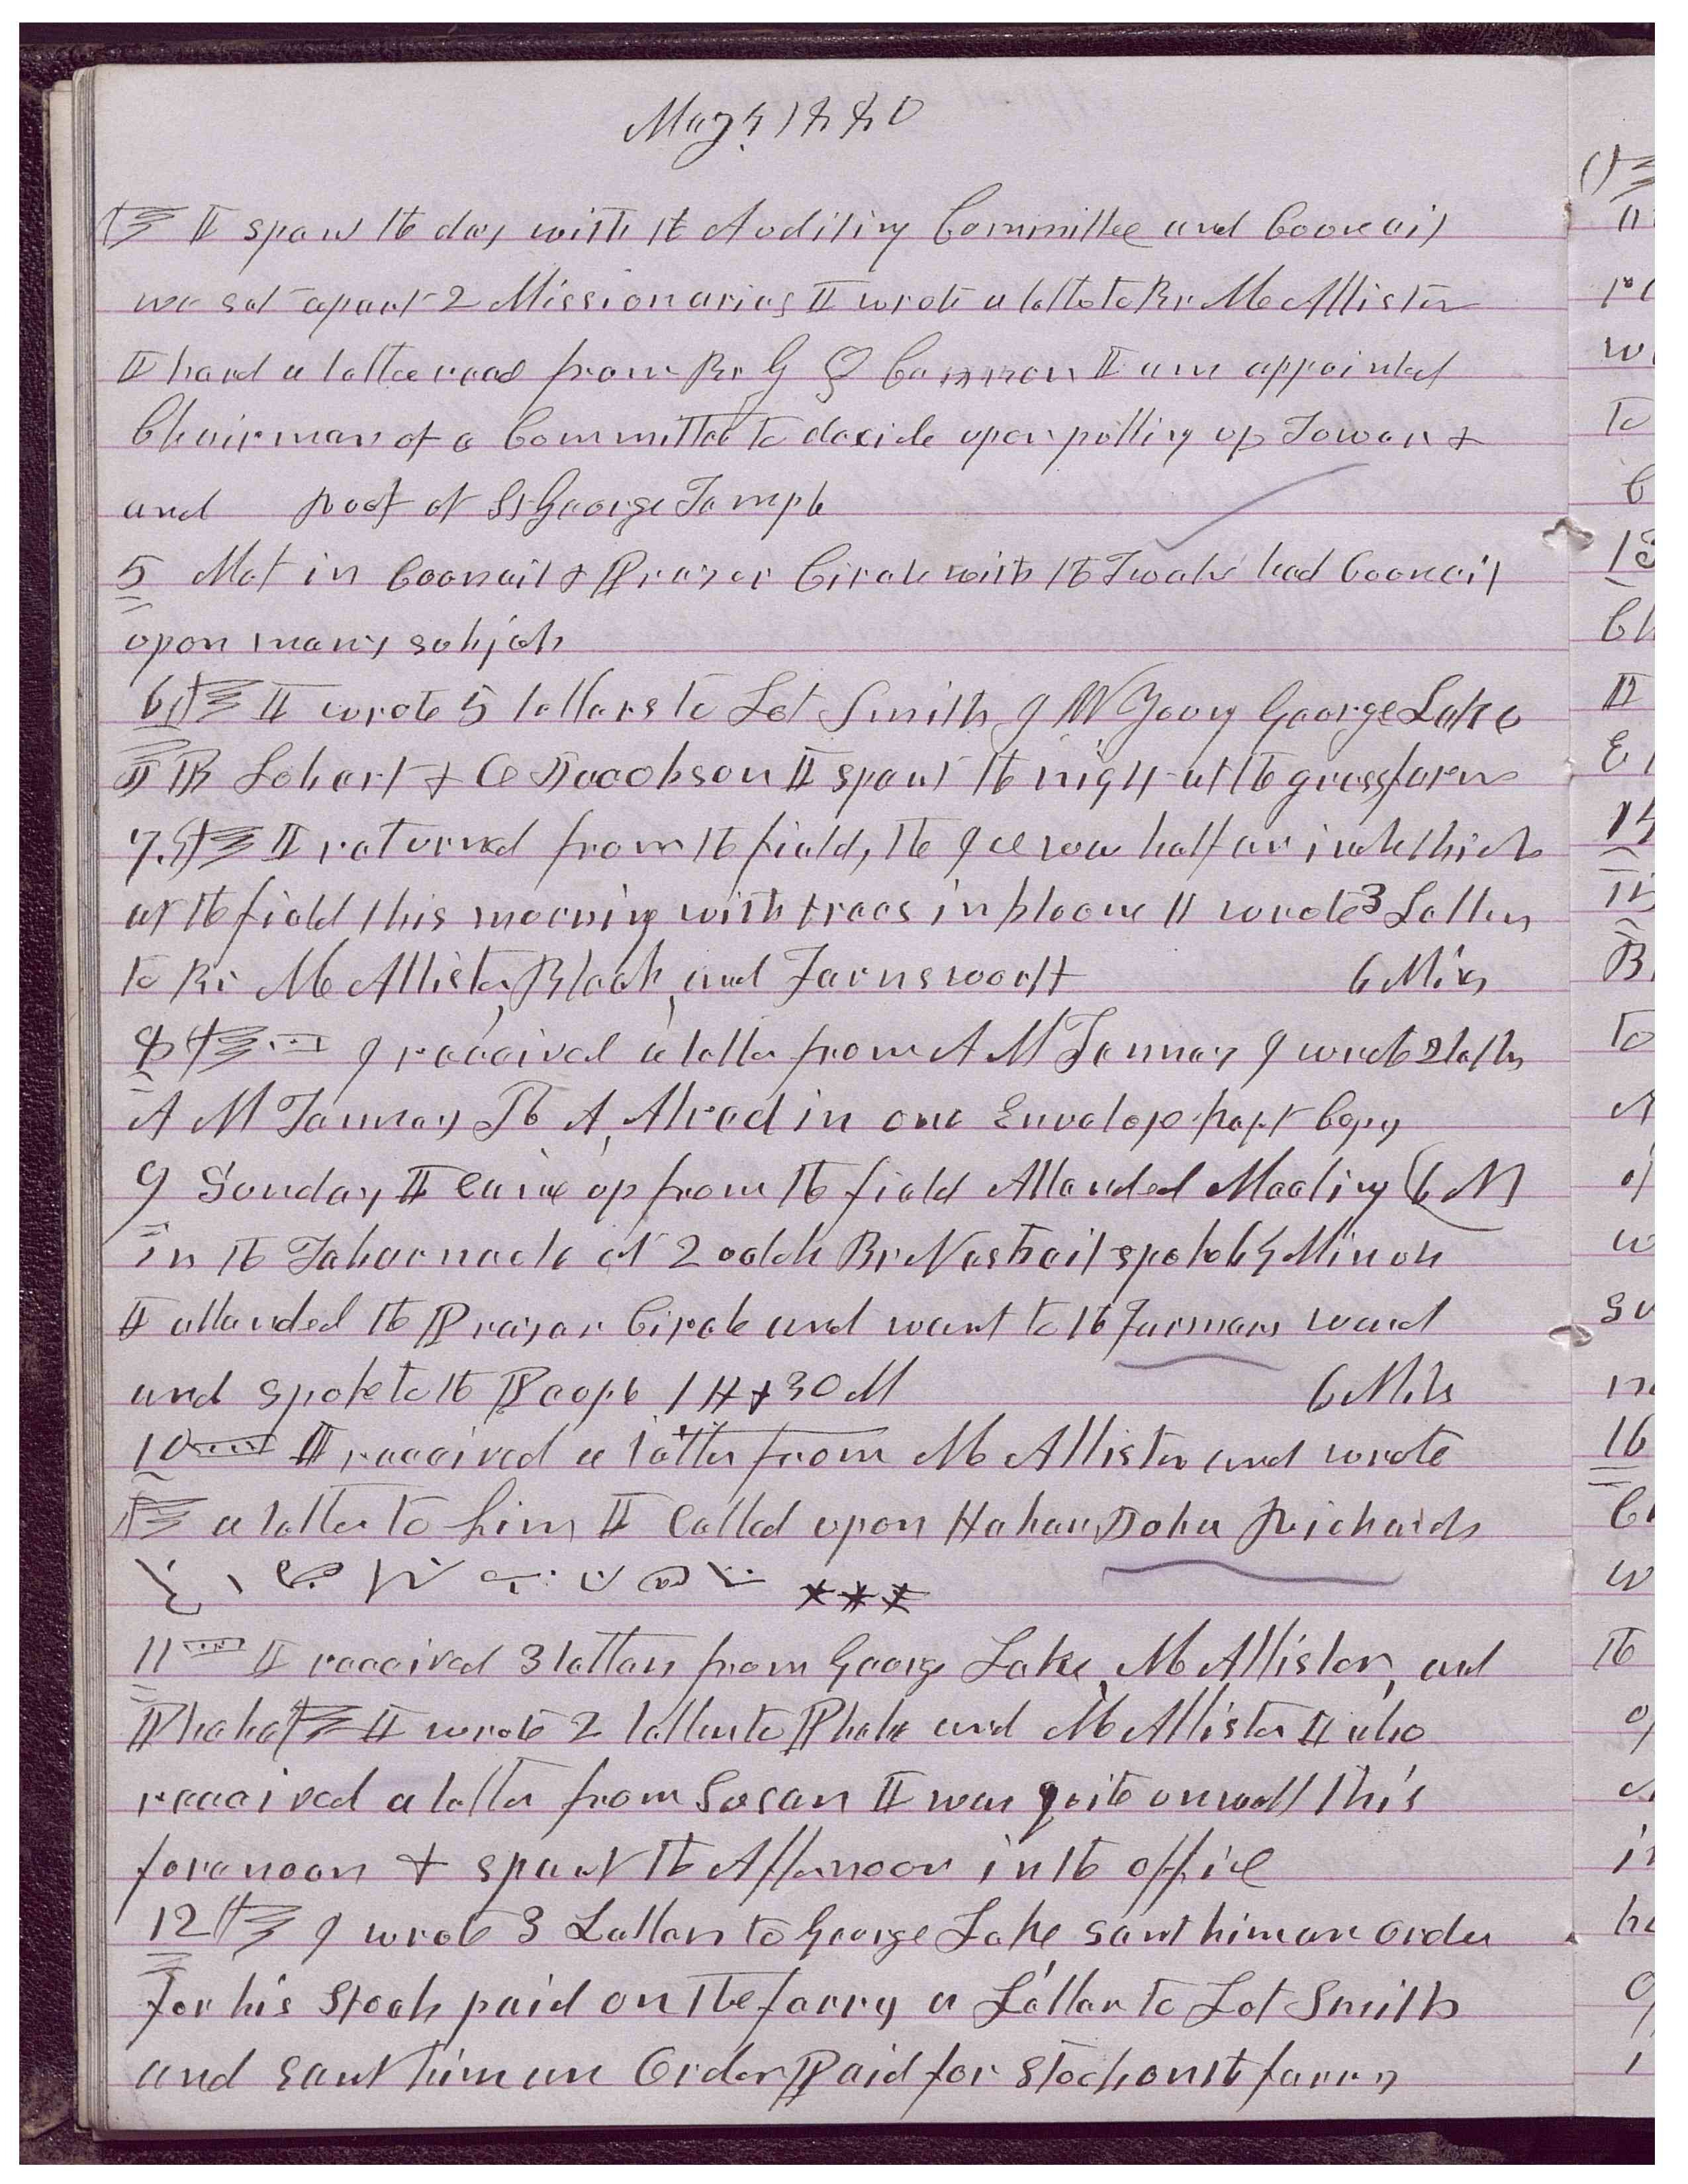 May 4 1880
I spent the day with the Auditing Committee and Council
we set apart 2 Missionaries I wrote a letter to Br McAllister
I heard a letter read from Br G Q Cannon I am appointed
Chairman of a Committee to decide upon putting up Tower &
and Roof of St George Temple
5 Met in Council & Prayer Circle with the Twelve had Council
upon many subjects
6 I wrote 5 letters to Lot Smith J W Young George Lake
I spent the night at the grass farm
7. I returned from the field, the Ice was half an inch thick
at the field this morning with trees in bloom I wrote 3 Letters
to Br McAllister, Black, and Farnsworth 6 Miles
8 I received a letter from A M Tenney I wrote 2 letters
A M Tenney in one Envelope kept Copy
9 Sunday I came up from the field Attended Meeting (6 M
in the Tabernacle at 2 oclok Br spoke Minutes
I attended the Prayer Circle and went to the Farmers ward
and spoke to the People 1 H & 30 M 6 Miles
10 I received a letter from McAllister and wrote
a letter to him I Called upon Heber John Richards
***
11 I received 3 letters from George Lake, McAllister, and
Phebe I wrote 2 letters to Phebe and McAllister I also
received a letter from Susan I was quite unwell this
forenoon & spent the Afternoon in the office
12 I wrote 3 Letters to George Lake sent him an order
for his Stock paid on the ferry a Letter to Lot Smith
and sent him an Order Paid for Stock on the ferry